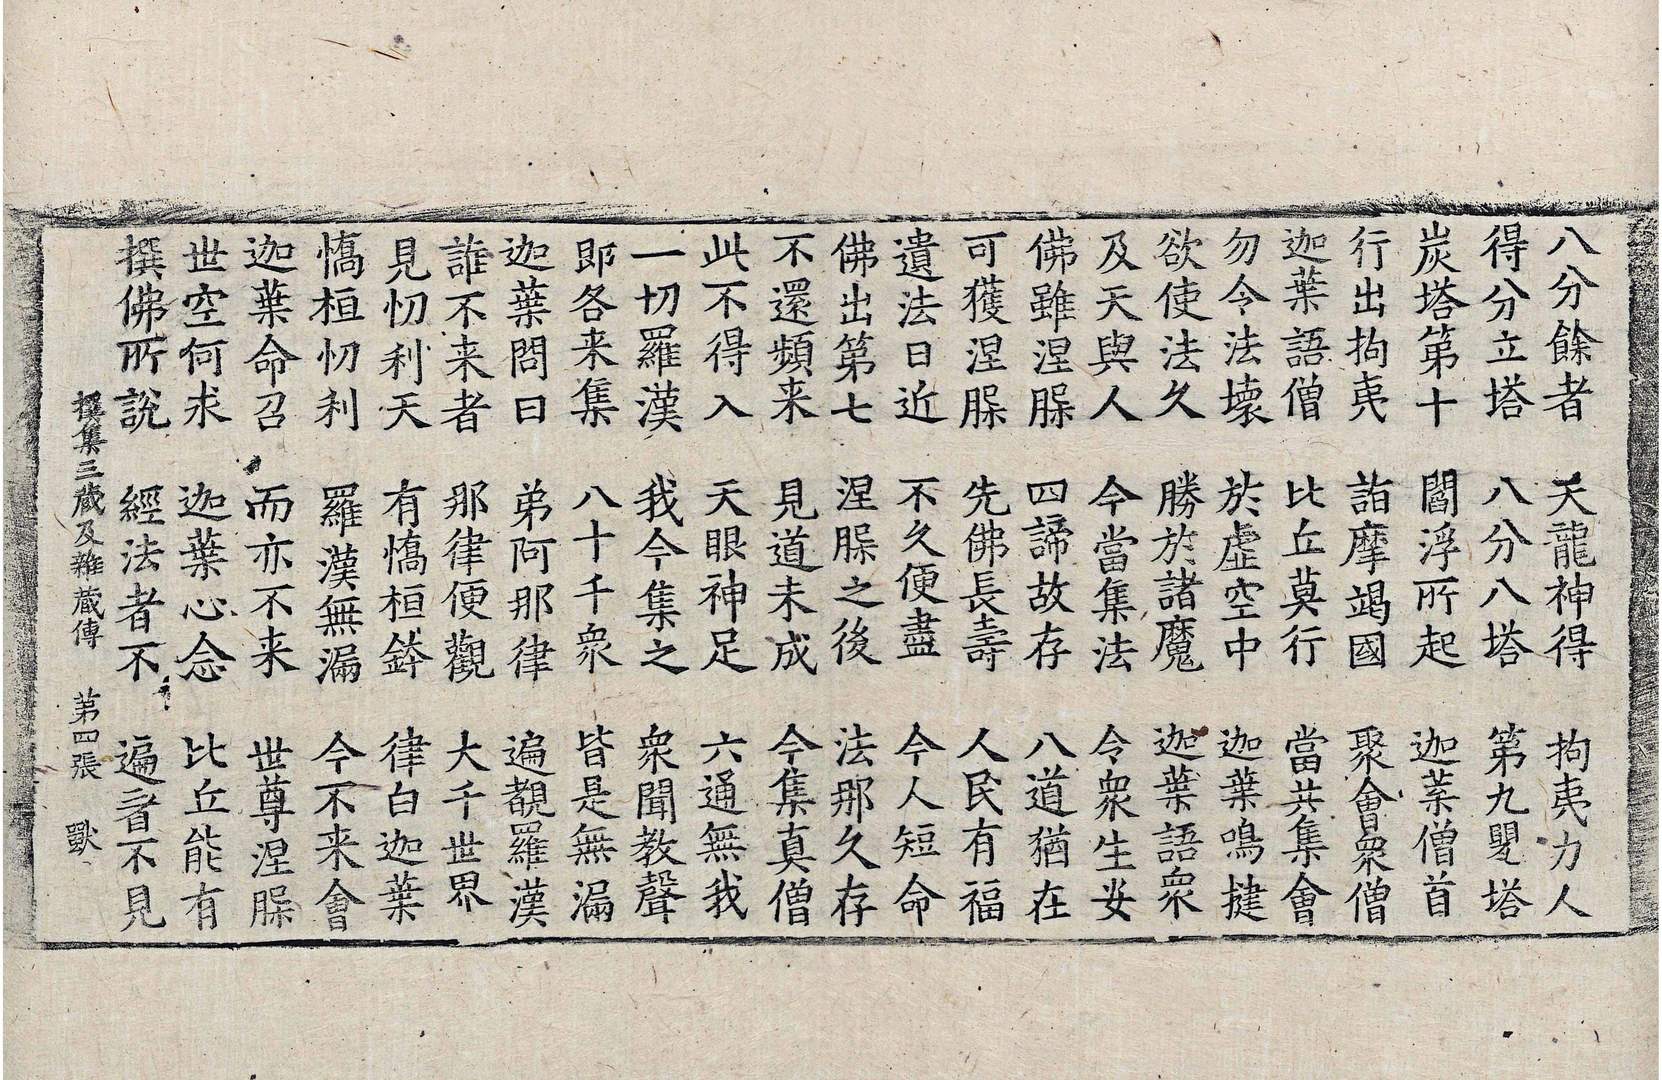 八分餘者 天龍神得 拘夷力人
得分立塔 八分八塔 第九甖塔
炭塔第十 閻浮所起 迦葉僧首
行出拘夷 詣摩竭國 聚會衆僧
迦葉語僧 比丘莫行 當共集會
勿令法壞 於虛空中 迦葉鳴揵
欲使法久 勝於諸魔 迦葉語衆
及天與人 今當集法 令衆生安
佛雖涅槃 四諦故存 八道猶在
可獲涅槃 先佛長壽 人民有福
遺法日近 不久便盡 今人短命
佛出第七 涅槃之後 法那久存
不還頻来 見道未成 今集真僧
此不得入 天眼神足 六通無我
一切羅漢 我今集之 衆聞教聲
即各来集 八十千衆 皆是無漏
迦葉問曰 弟阿那律 遍覩羅漢
誰不来者 那律便觀 大千世界
見忉利天 有憍桓鉢 律白迦葉
憍桓忉利 羅漢無漏 今不来會
迦葉命召 而亦不来 世尊涅槃
世空何求 迦葉心念 比丘能有
撰佛所說 經法者不 遍者不見
撰集三藏及雜藏傳 第四張 獸